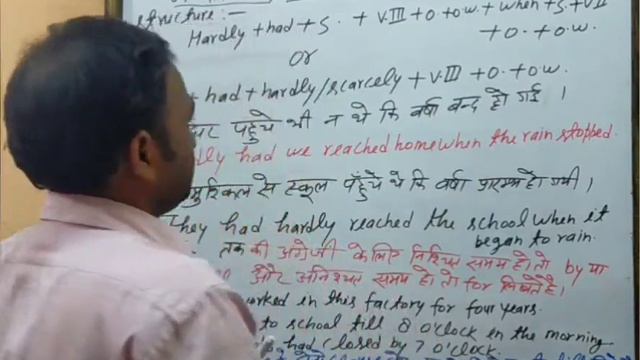 structure:-
Hardly + had + S. + V.III + O + O.W. + when + S. + V.II
+ O. + O.W.
OR
+ had + hardly/scarcely + V.III + O. + O.W.
पहुँचे भी न थे कि वर्षा बन्द हो गई ।
had we reached home when the rain stopped.
से स्कूल पहुँचे थे कि वर्षा प्रारम्भ हो गयी ।
They had hardly reached the school when it
began to rain.
तक की अंग्रेजी के लिए निश्चित समय हो तो by या
और अनिश्चित समय हो तो for लिखते है।
in this factory for four years.
to school till 8 o'clock in the morning
had closed by 7 o'clock